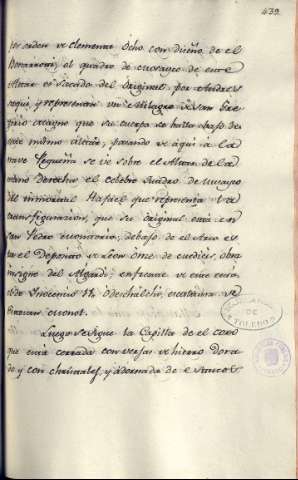 439
por orden de Clemente Ocho con diseño de el
Bonarroti; el quadro de mosayco de este
Altar es sacado del Original, por Andres
sequi, y representa un Milagro de San Gre
gorio Magno que su cuerpo se halla abajo de
este mismo altar, pasando de aqui á la
nave Pequeña se ve sobre el Altar de la
mano derecha el celebre quadro de mosayco
del inmortal Rafael que representa la
transfiguracion, que su original está en
San Pedro Montorio; debajo de el Arco es
ta el Deposito de Leon Onse de Medicis, obra
insigne del Algardi; enfrente de este está
el de Inocencio XI Odeschalchi, escultura de
Monot.
Luego se sigue la Capilla de el coro
que está cerrada con verjas de hierro dora
do y con christales, y adornada de estucos
DE
TOLEDO